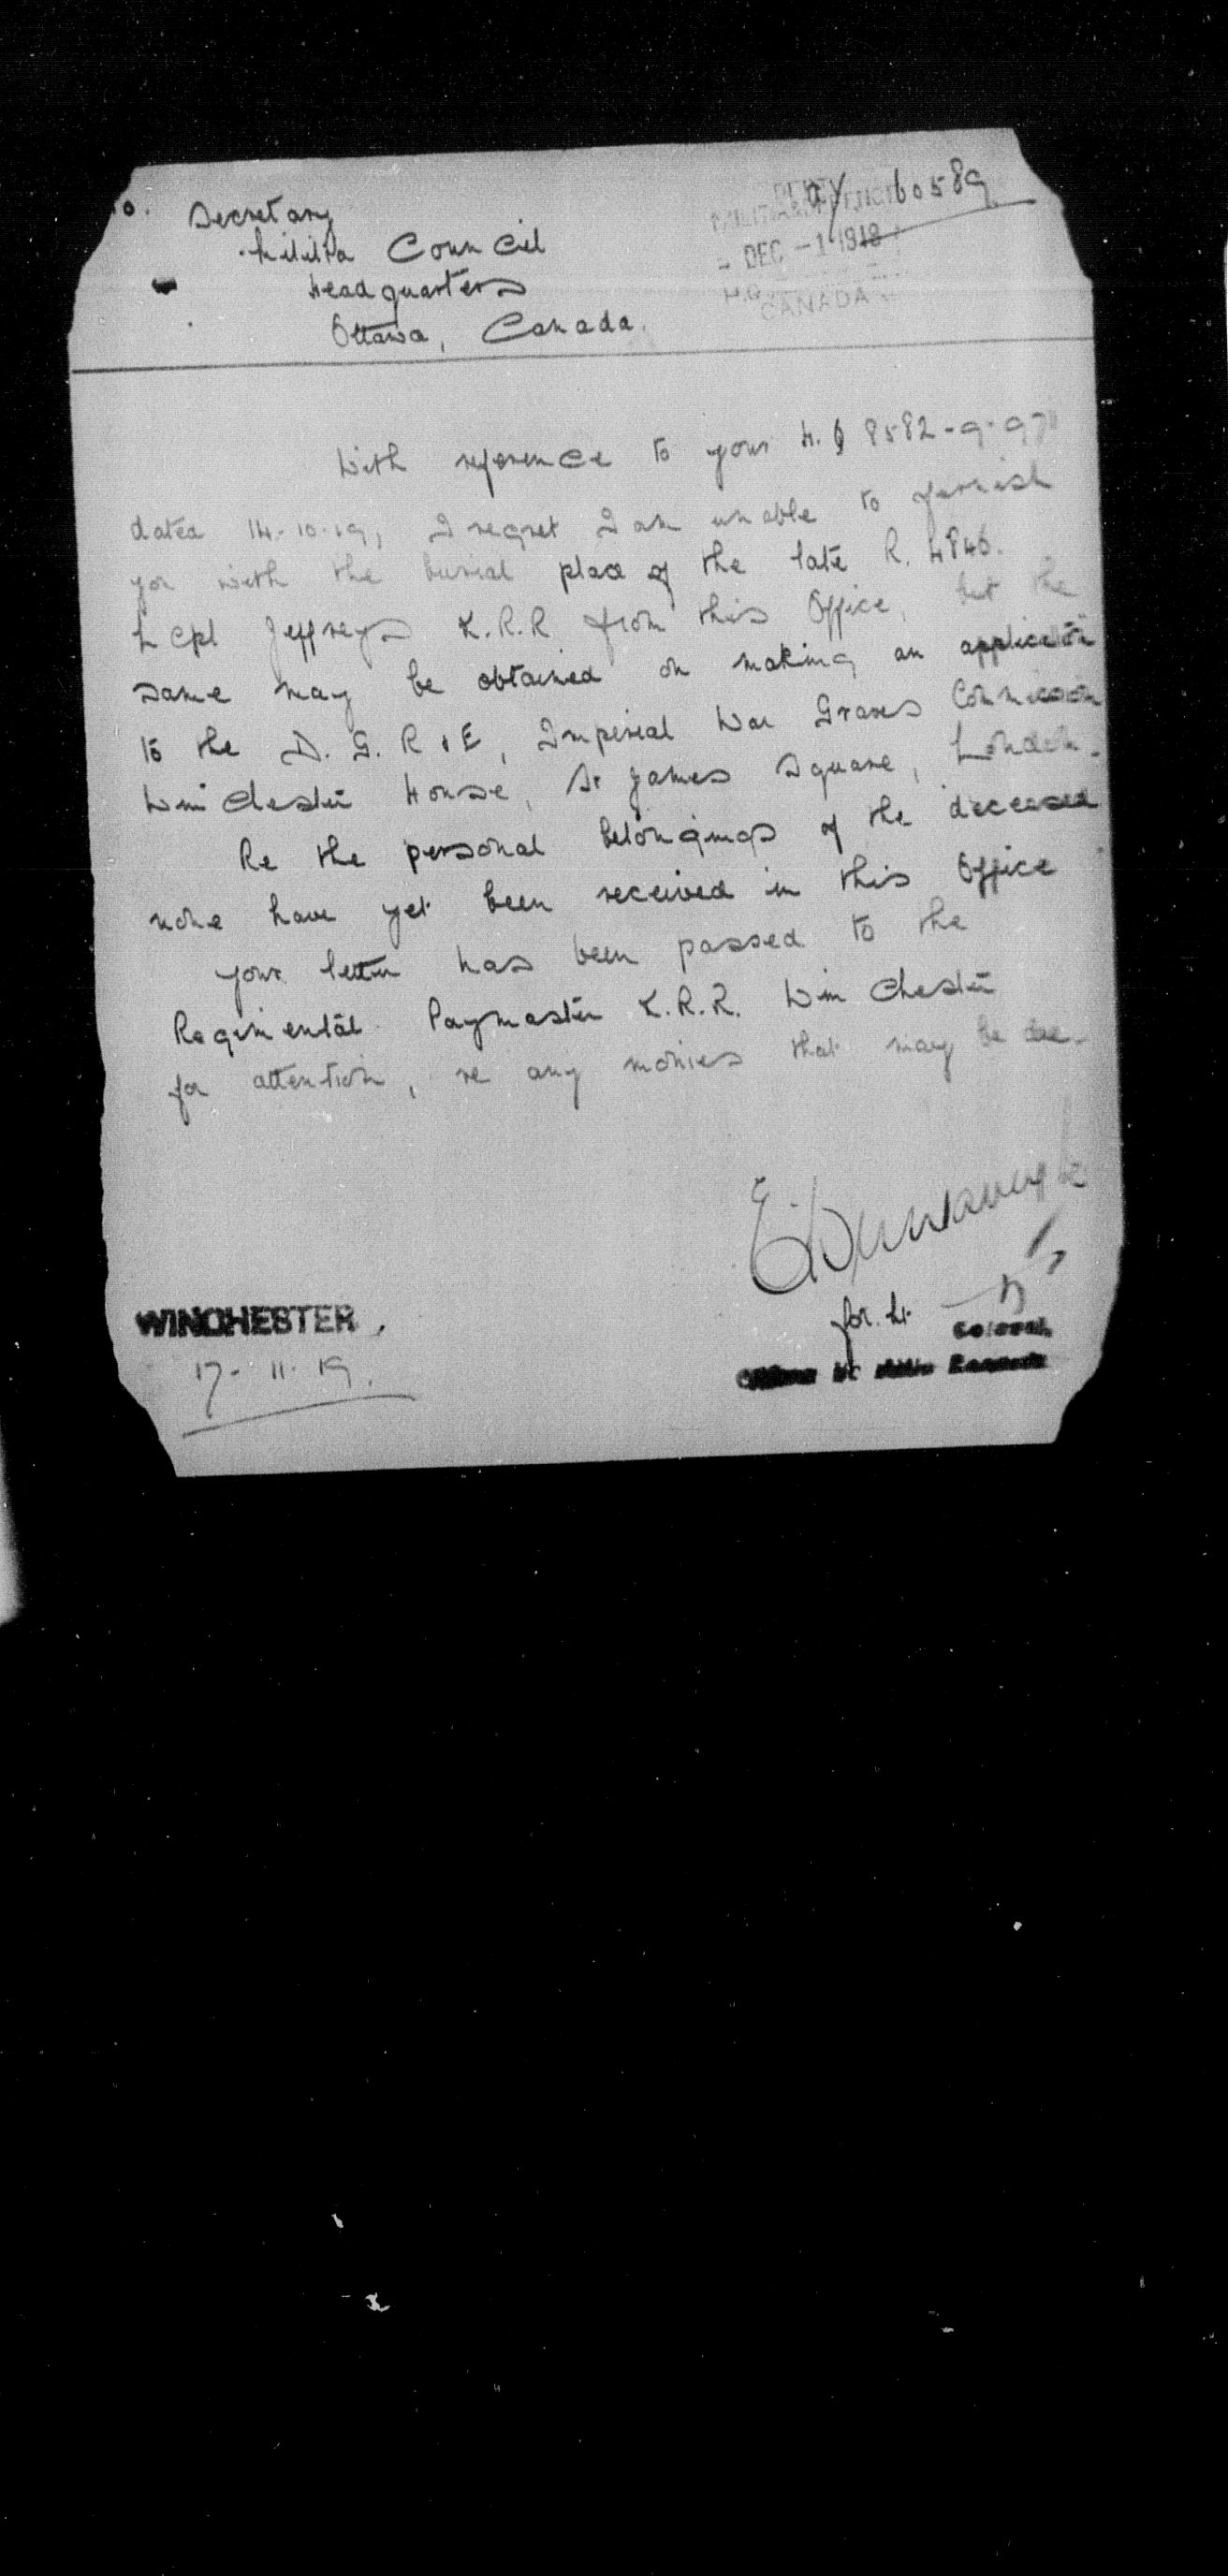 o. Secretary
Militia Council
Headquarters
Ottawa, Canada.
60589
DEC -1 1919
H.Q.
CANADA
With reference to your H.Q 8582-9-97
dated 14-10-19, I regret I am unable to furnish
you with the burial place of the late R. 4846.
L Cpl Jeffreys K.R.R from this Office, but the
same may be obtained on making an application
to the D. G. R & E, Imperial War Graves Commission
Winchester House, St James Square, London.
Re the personal belongings of the deceased
none have yet been received in this Office
Your letter has been passed to the
Regimental Paymaster K.R.R. Winchester
for attention, re any monies that may be due.
for Lt.
Colonel,
WINCHESTER,
17-11-19.